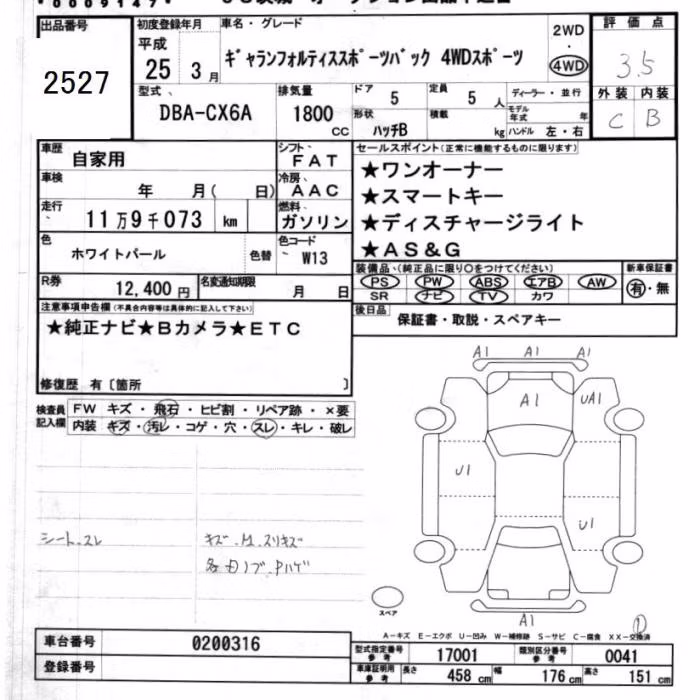 出品番号 初度登録年月 車名・グレード 2WD 評価点
2527 平成 25 3月 ギャランフォルティススポーツバック 4WDスポーツ ・ 4WD 3.5
型式 DBA-CX6A 排気量 1800 CC ドア 5 定員 5人 ディーラー・並行 外装 内装
形状 ハッチB 積載 kg モデル年式 年 ハンドル 左・右 C B
車歴 自家用 シフト FAT セールスポイント(正常に機能するものに限ります)
車検 年 月( 日) 冷房 AAC ★ワンオーナー
★スマートキー
走行 11万9千073 km 燃料 ガソリン ★ディスチャージライト
色 ホワイトパール 色替 色コード W13 ★AS&G
装備品(純正品に限り○をつけてください) 新車保証書
R券 12,400円 名変通知期限 月 日 PS PW ABS エアB AW 有・無
SR ナビ TV カワ
注意事項申告欄(不具合内容等は具体的に記入して下さい) 後日品 保証書・取説・スペアキー
★純正ナビ★Bカメラ★ETC
修復歴 有〔箇所 〕
検査員記入欄 FW キズ・飛石・ヒビ割・リペア跡・×要
内装 キズ・汚レ・コゲ・穴・スレ・キレ・破レ
A1 A1 A1
A1 UA1
U1
U1
シート.スレ キズ.
スリキズ
Pハゲ
スペア A1 ①
A-キズ E-エクボ U-凹み W-補修跡 S-サビ C-腐食 XX-交換済
車台番号 0200316 型式指定番号 参考 17001 類別区分番号 参考 0041
登録番号 車庫証明用 参考 長さ 458cm 幅 176cm 高さ 151cm